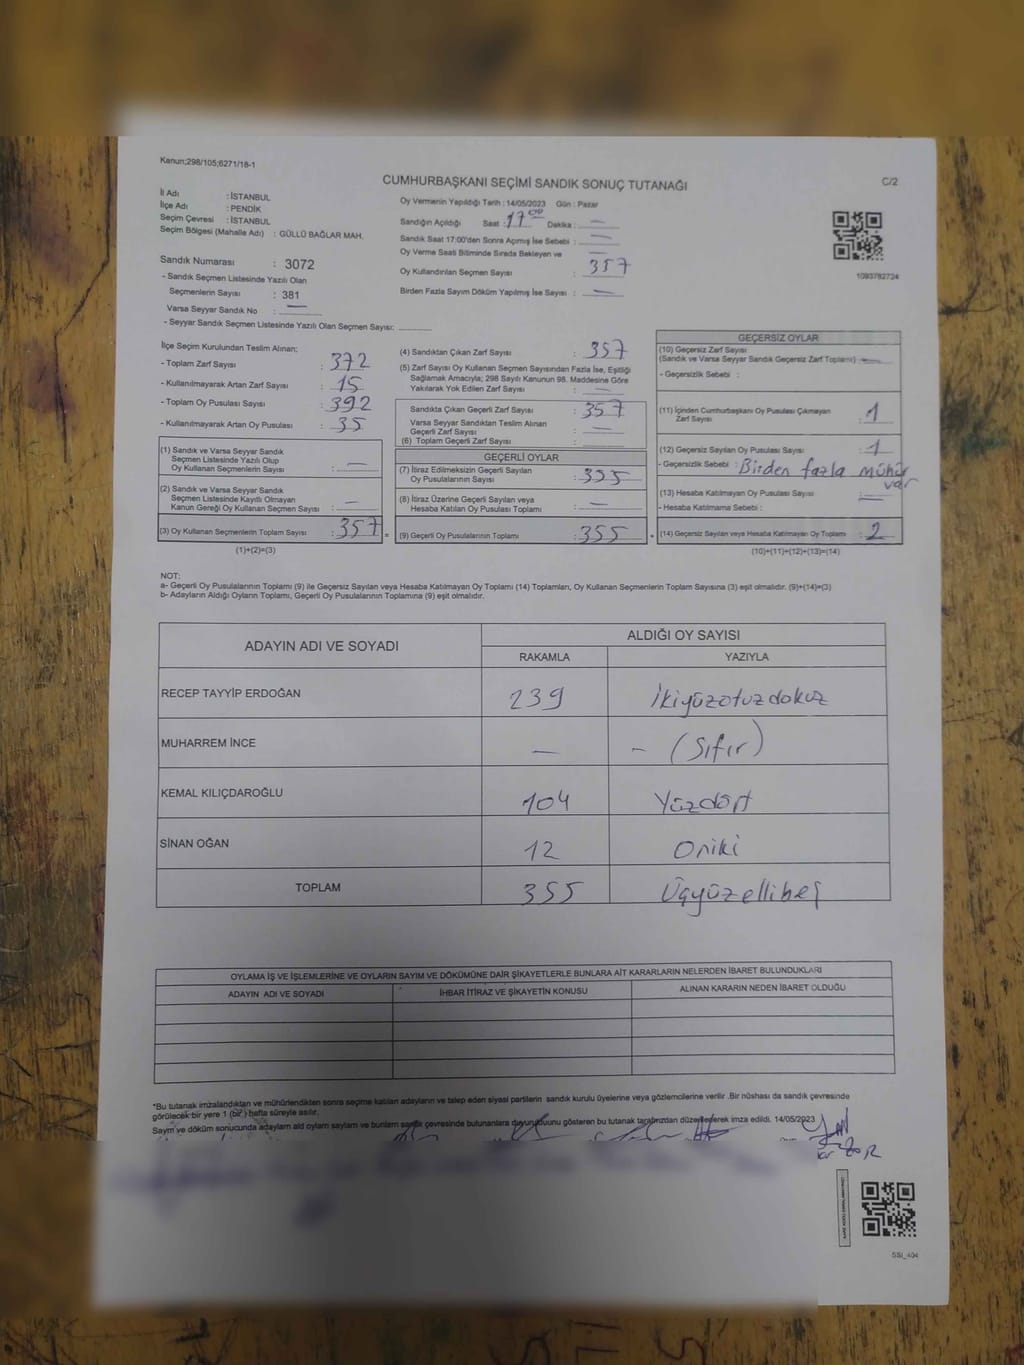 Kanun;298/105;6271/18-1
CUMHURBAŞKANI SEÇİMİ SANDIK SONUÇ TUTANAĞI
C/2
İl Adı : İSTANBUL
İlçe Adı : PENDİK
Seçim Çevresi : İSTANBUL
Seçim Bölgesi (Mahalle Adı) : GÜLLÜ BAĞLAR MAH.
Sandık Numarası : 3072
- Sandık Seçmen Listesinde Yazılı Olan
Seçmenlerin Sayısı : 381
Varsa Seyyar Sandık No : —
- Seyyar Sandık Seçmen Listesinde Yazılı Olan Seçmen Sayısı:
Oy Vermenin Yapıldığı Tarih : 14/05/2023 Gün : Pazar
Sandığın Açıldığı Saat : 17 00 Dakika : —
Sandık Saat 17:00'den Sonra Açımış İse Sebebi : —
Oy Verme Saati Bitiminde Sırada Bekleyen ve : —
Oy Kullandırılan Seçmen Sayısı : 357
Birden Fazla Sayım Döküm Yapılmış İse Sayısı : —
1093782724
İlçe Seçim Kurulundan Teslim Alınan;
- Toplam Zarf Sayısı : 372
- Kullanılmayarak Artan Zarf Sayısı : 15
- Toplam Oy Pusulası Sayısı : 392
- Kullanılmayarak Artan Oy Pusulası : 35
(1) Sandık ve Varsa Seyyar Sandık
Seçmen Listesinde Yazılı Olup
Oy Kullanan Seçmenlerin Sayısı : —
(2) Sandık ve Varsa Seyyar Sandık
Seçmen Listesinde Kayıtlı Olmayan
Kanun Gereği Oy Kullanan Seçmen Sayısı : —
(3) Oy Kullanan Seçmenlerin Toplam Sayısı : 357 =
(1)+(2)=(3)
(4) Sandıktan Çıkan Zarf Sayısı : 357
(5) Zarf Sayısı Oy Kullanan Seçmen Sayısından Fazla İse, Eşitliği
Sağlamak Amacıyla; 298 Sayılı Kanunun 98. Maddesine Göre
Yakılarak Yok Edilen Zarf Sayısı : —
Sandıkta Çıkan Geçerli Zarf Sayısı : 357
Varsa Seyyar Sandıktan Teslim Alınan
Geçerli Zarf Sayısı : —
(6) Toplam Geçerli Zarf Sayısı :
GEÇERLİ OYLAR
(7) İtiraz Edilmeksizin Geçerli Sayılan
Oy Pusulalarının Sayısı : 355
(8) İtiraz Üzerine Geçerli Sayılan veya
Hesaba Katılan Oy Pusulası Toplamı : —
(9) Geçerli Oy Pusulalarının Toplamı : 355
GEÇERSİZ OYLAR
(10) Geçersiz Zarf Sayısı
(Sandık ve Varsa Seyyar Sandık Geçersiz Zarf Toplamı) —
- Geçersizlik Sebebi :
(11) İçinden Cumhurbaşkanı Oy Pusulası Çıkmayan
Zarf Sayısı : 1
(12) Geçersiz Sayılan Oy Pusulası Sayısı : 1
- Geçersizlik Sebebi : Birden fazla mühür
var
(13) Hesaba Katılmayan Oy Pusulası Sayısı : —
- Hesaba Katılmama Sebebi :
(14) Geçersiz Sayılan veya Hesaba Katılmayan Oy Toplamı : 2
(10)+(11)+(12)+(13)=(14)
NOT:
a- Geçerli Oy Pusulalarının Toplamı (9) ile Geçersiz Sayılan veya Hesaba Katılmayan Oy Toplamı (14) Toplamları, Oy Kullanan Seçmenlerin Toplam Sayısına (3) eşit olmalıdır. (9)+(14)=(3)
b- Adayların Aldığı Oyların Toplamı, Geçerli Oy Pusulalarının Toplamına (9) eşit olmalıdır.
ADAYIN ADI VE SOYADI
ALDIĞI OY SAYISI
RAKAMLA YAZIYLA
RECEP TAYYİP ERDOĞAN 239 İkiyüzotuzdokuz
MUHARREM İNCE — - (Sıfır)
KEMAL KILIÇDAROĞLU 104 Yüzdört
SİNAN OĞAN 12 Oniki
TOPLAM 355 Üçyüzellibeş
OYLAMA İŞ VE İŞLEMLERİNE VE OYLARIN SAYIM VE DÖKÜMÜNE DAİR ŞİKAYETLERLE BUNLARA AİT KARARLARIN NELERDEN İBARET BULUNDUKLARI
ADAYIN ADI VE SOYADI İHBAR İTİRAZ VE ŞİKAYETİN KONUSU ALINAN KARARIN NEDEN İBARET OLDUĞU
*Bu tutanak imzalandıktan ve mühürlendikten sonra seçime katılan adayların ve talep eden siyasi partilerin sandık kurulu üyelerine veya gözlemcilerine verilir .Bir nüshası da sandık çevresinde
görülecek bir yere 1 (bir ) hafta süreyle asılır.
Sayım ve döküm sonucunda adayların ald oyların sayıları ve bunların sandık çevresinde bulunanlara duyurulduunu gösteren bu tutanak tarafımızdan düzenlenerek imza edildi. 14/05/2023
SSI_404